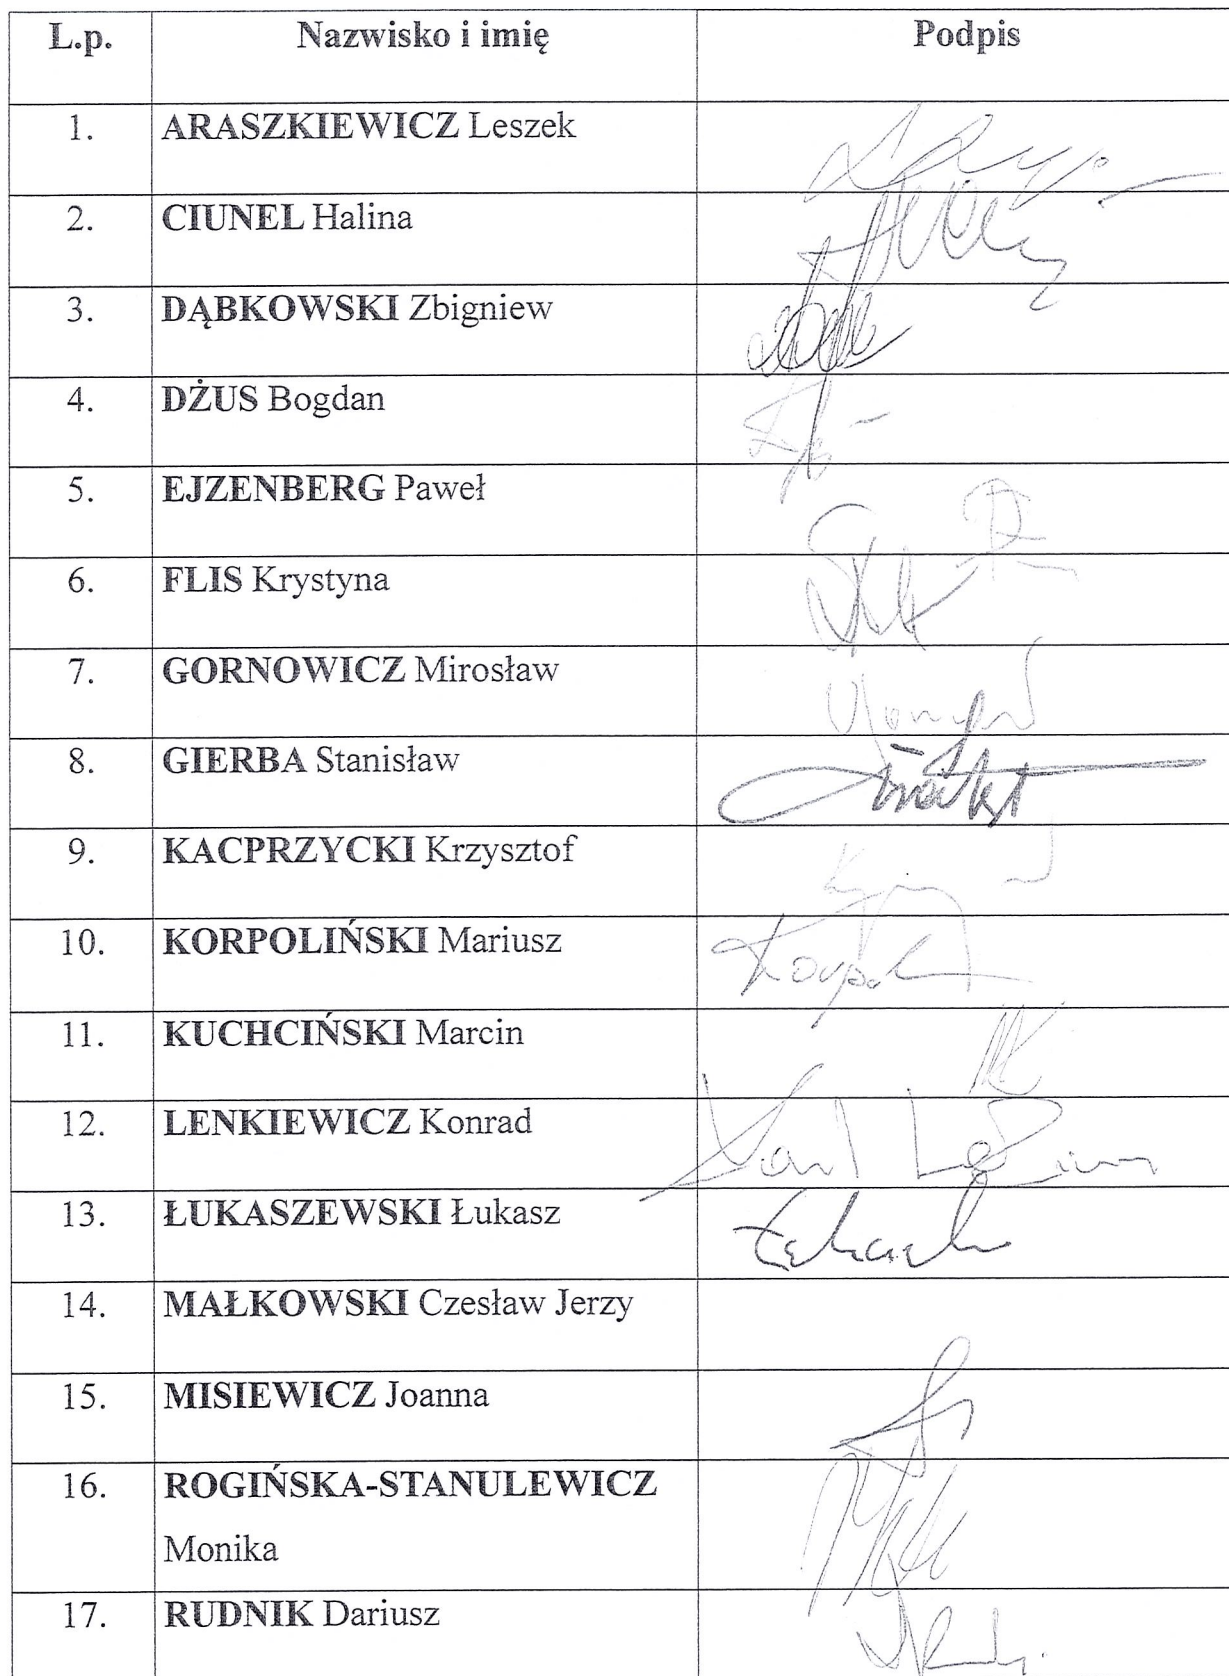 L.p. Nazwisko i imię Podpis
1. ARASZKIEWICZ Leszek
2. CIUNEL Halina
3. DĄBKOWSKI Zbigniew
4. DŻUS Bogdan
5. EJZENBERG Paweł
6. FLIS Krystyna
7. GORNOWICZ Mirosław
8. GIERBA Stanisław
9. KACPRZYCKI Krzysztof
10. KORPOLIŃSKI Mariusz
11. KUCHCIŃSKI Marcin
12. LENKIEWICZ Konrad
13. ŁUKASZEWSKI Łukasz
14. MAŁKOWSKI Czesław Jerzy
15. MISIEWICZ Joanna
16. ROGIŃSKA-STANULEWICZ
Monika
17. RUDNIK Dariusz